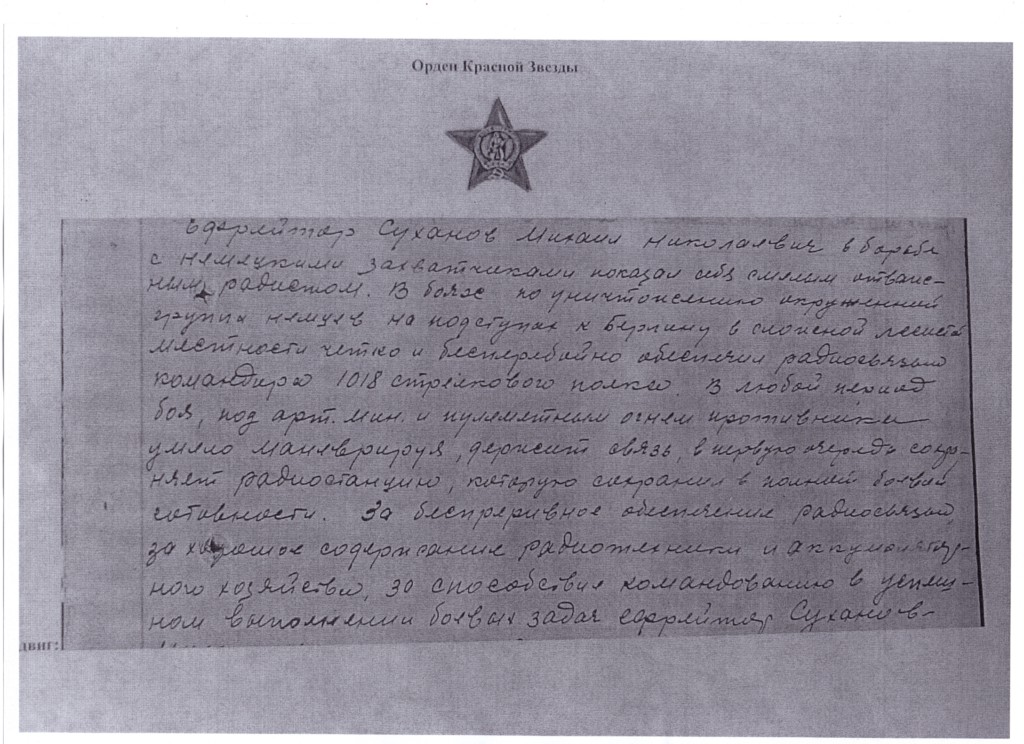 Орден Красной Звезды
Ефрейтор Суханов Михаил Николаевич в борьбе
с немецкими захватчиками показал себя смелым отваж-
ным радистом. В боях по уничтожению окруженной
группы немцев на подступах к Берлину в сложной лесистой
местности четко и бесперебойно обеспечил радиосвязью
командира 1018 стрелкового полка. В любой период
боя, под арт. мин. и пулеметным огнем противника
умело маневрируя, держит связь, в первую очередь сохра-
няет радиостанцию, которую сохранил в полной боевой
готовности. За беспрерывное обеспечение радиосвязью,
за хорошое содержание радиотехники и аккумулятор-
ного хозяйства, за способствие командованию в успеш-
ном выполнении боевых задач ефрейтор Суханов-
двиг: